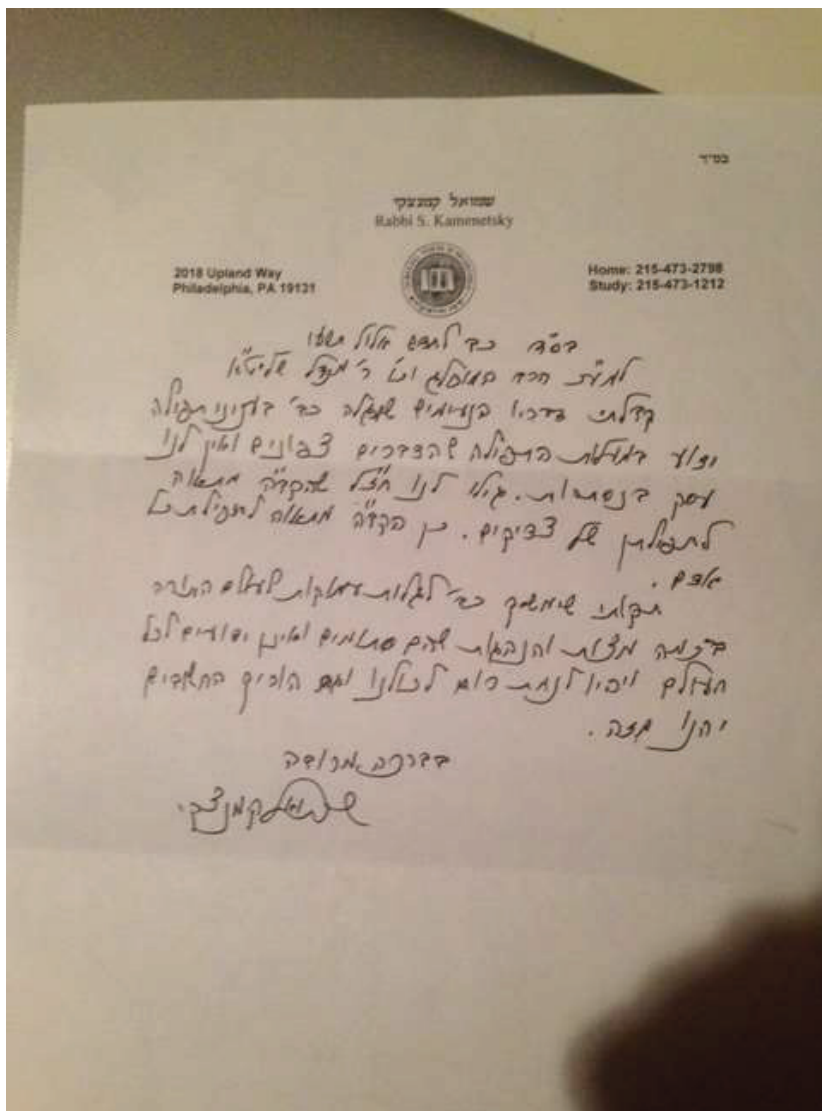 בס״ד
שמואל קמנצקי
Rabbi S. Kamenetsky
2018 Upland Way
Philadelphia, PA 19131
Home: 215-473-2798
Study: 215-473-1212
בס״ד כב לחדש אלול תשע
למע״ת הרה המופלג וכו ר׳ מנדל שליט״א
קבלתי הנעימים כב׳ בעניני תפילה
ידוע במעלות התפילה שהדברים צפונים ואין לנו
עסק בנסתרות. גילו לנו חז״ל שהקב״ה מתאוה
לתפילתן של צדיקים. כן הקב״ה מתאוה לתפילת כל
אדם.
תקותי שימשיך כב׳ לגלות עמקות לעולם התורה
בכמה מצות והנהגות שהם סתומים ואינן ידועים לכל
העולם ויהיו לנחת רוח לכולנו וגם הוריך החשובים
יהנו מזה.
בברכה מרובה
שמואל קמנצקי